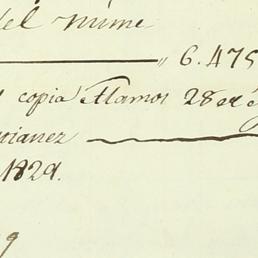 del nume
6.475
copia Alamos 28 de
tianez
1829.
9